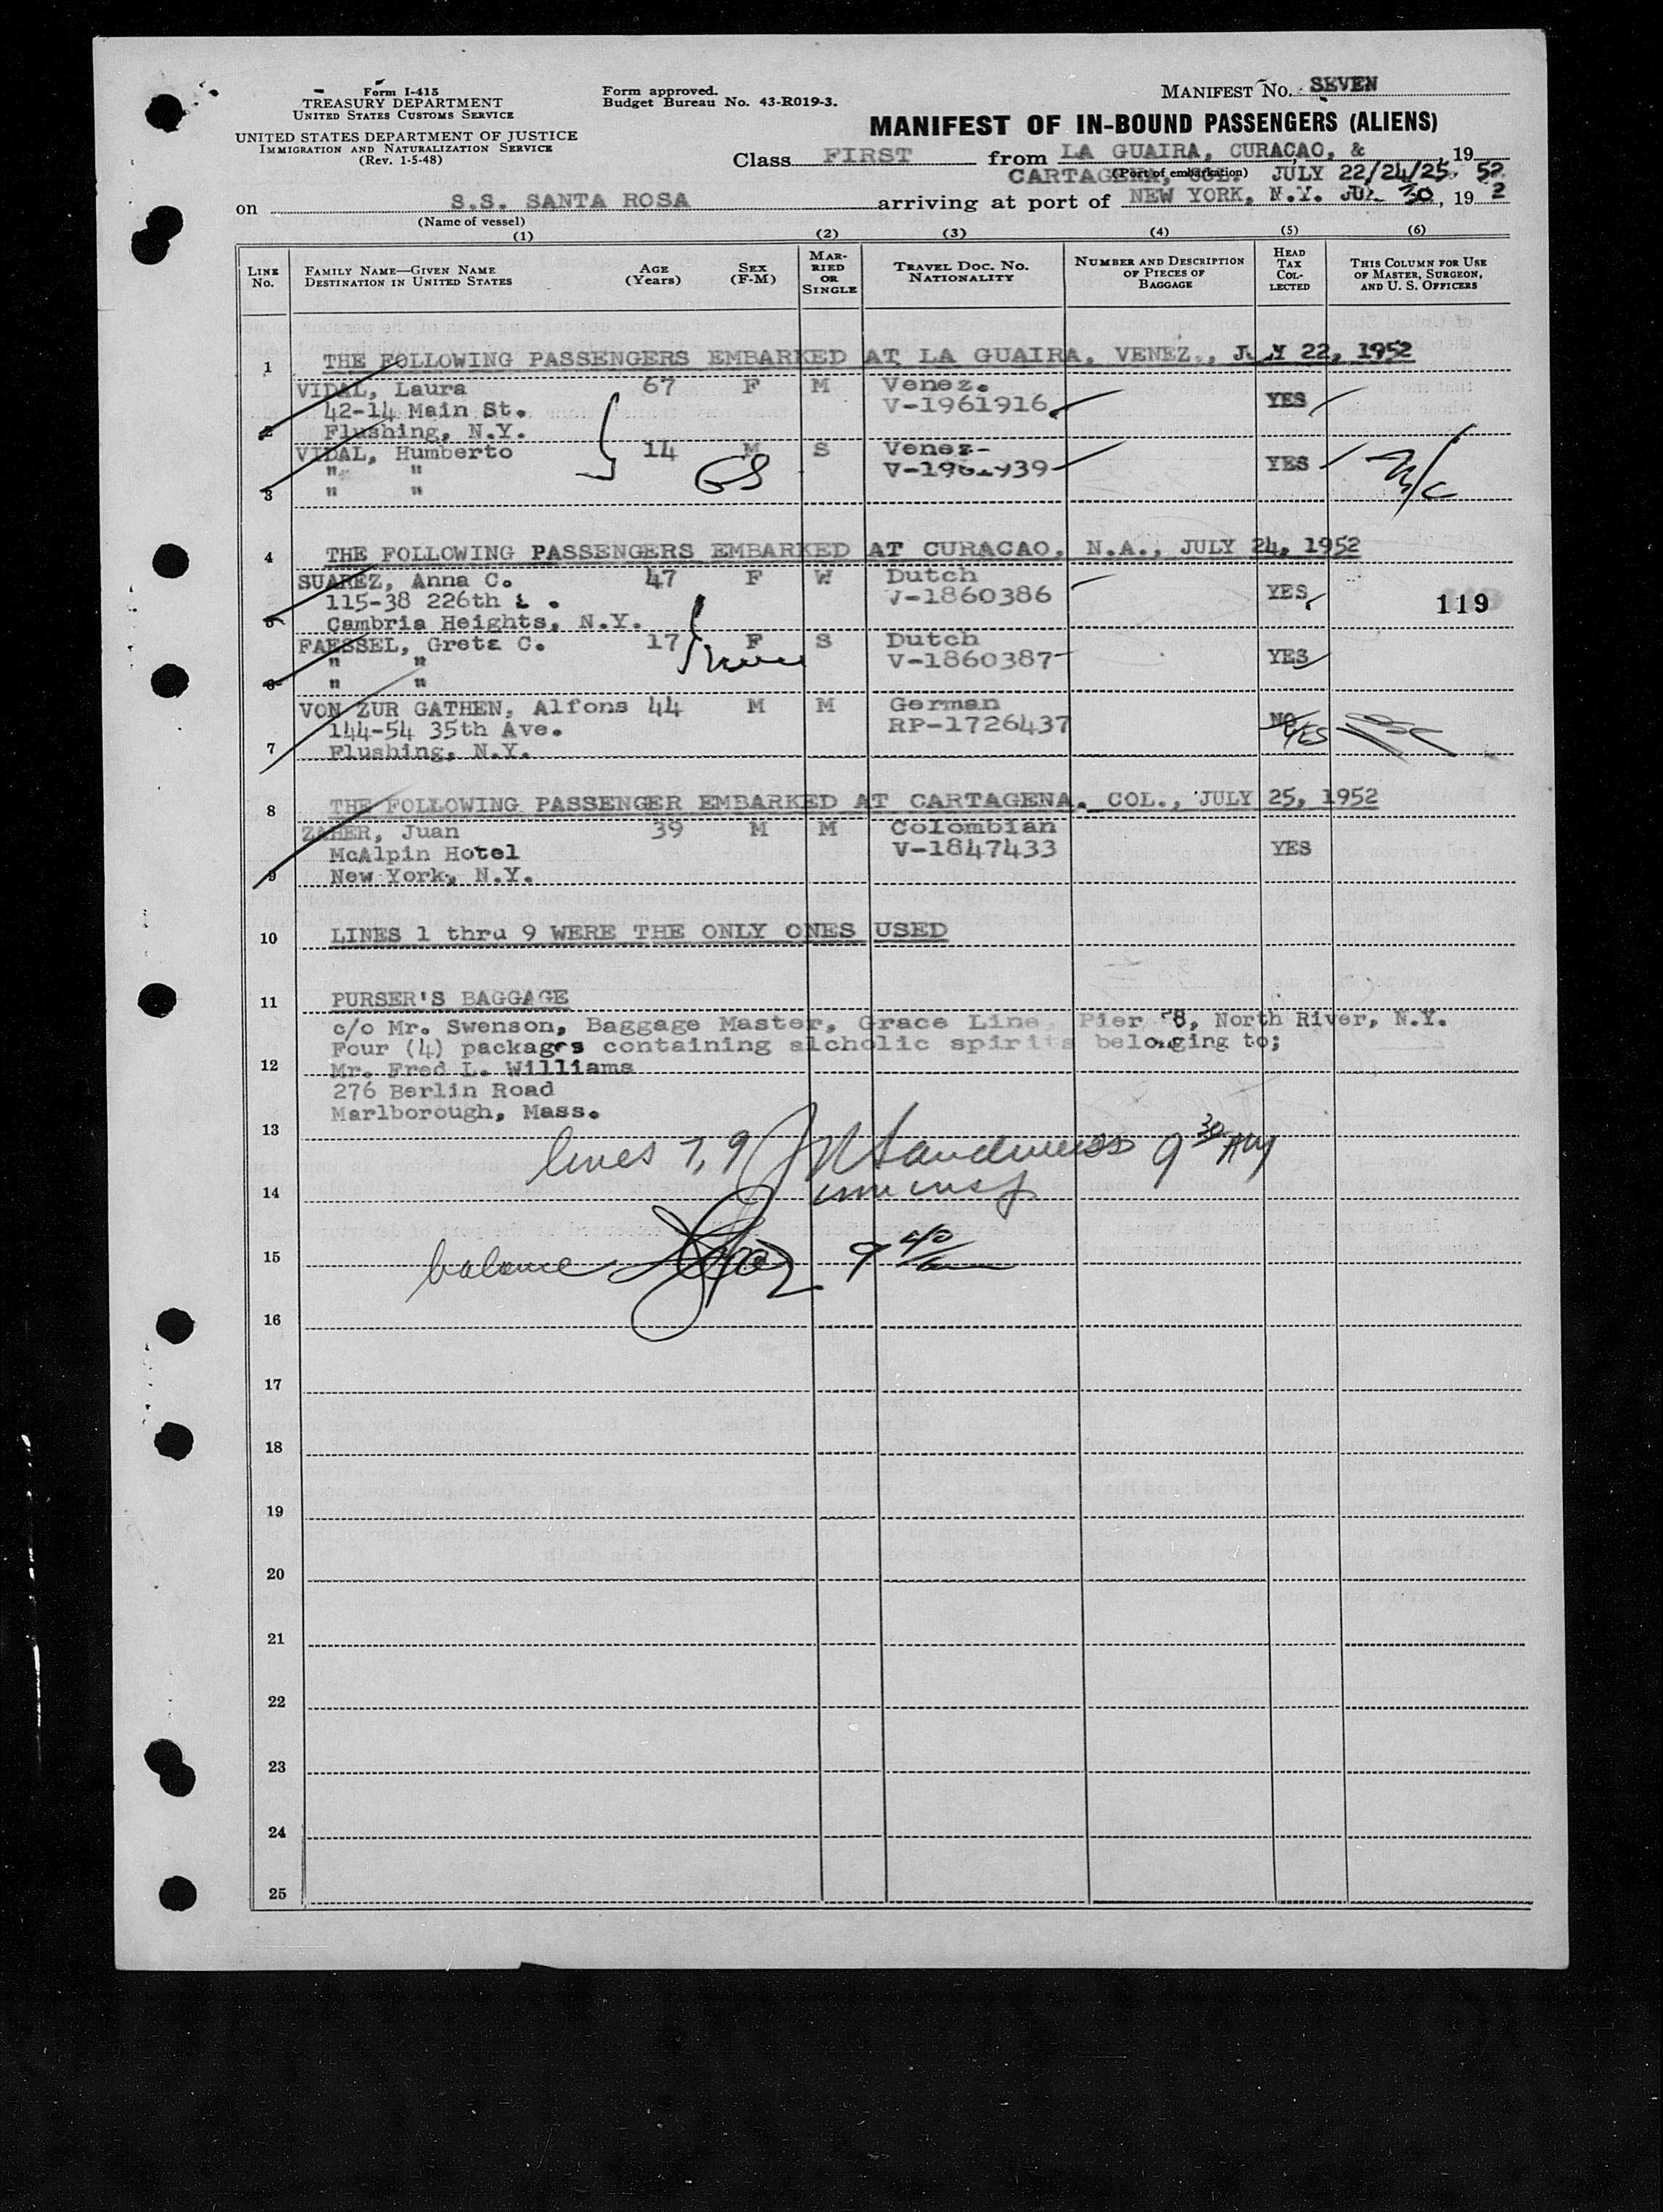 Form I-415
TREASURY DEPARTMENT
UNITED STATES CUSTOMS SERVICE
UNITED STATES DEPARTMENT OF JUSTICE
IMMIGRATION AND NATURALIZATION SERVICE
(Rev. 1-5-48)
Form approved.
Budget Bureau No. 43-R019-3.
MANIFEST NO. SEVEN
MANIFEST OF IN-BOUND PASSENGERS (ALIENS)
Class FIRST from LA GUAIRA, CURACAO, & , 19
CARTAGENA, COL. (Port of embarkation) JULY 22/24/25, 52
on S.S. SANTA ROSA arriving at port of NEW YORK, N.Y. JUL 30, 19 2
(Name of vessel)
(1) (2) (3) (4) (5) (6)
LINE No. FAMILY NAME—GIVEN NAME DESTINATION IN UNITED STATES AGE (Years) SEX (F-M) MARRIED OR SINGLE TRAVEL DOC. NO. NATIONALITY NUMBER AND DESCRIPTION OF PIECES OF BAGGAGE HEAD TAX COLLECTED THIS COLUMN FOR USE OF MASTER, SURGEON, AND U. S. OFFICERS
1 THE FOLLOWING PASSENGERS EMBARKED AT LA GUAIRA, VENEZ., JULY 22, 1952
VIDAL, Laura 67 F M Venez.
42-14 Main St. V-1961916 YES
2 Flushing, N.Y.
VIDAL, Humberto 14 M S Venez-
" " V-19 939 YES
3 " "
4 THE FOLLOWING PASSENGERS EMBARKED AT CURACAO, N.A., JULY 24, 1952
SUAREZ, Anna C. 47 F W Dutch
115-38 226th . V-1860386 YES 119
5 Cambria Heights, N.Y.
FAESSEL, Greta C. 17 F S Dutch
" " V-1860387 YES
6 " "
VON ZUR GATHEN, Alfons 44 M M German
144-54 35th Ave. RP-1726437 NO YES
7 Flushing, N.Y.
8 THE FOLLOWING PASSENGER EMBARKED AT CARTAGENA. COL., JULY 25, 1952
ZAHER, Juan 39 M M Colombian
McAlpin Hotel V-1847433 YES
9 New York, N.Y.
10 LINES 1 thru 9 WERE THE ONLY ONES USED
11 PURSER'S BAGGAGE
c/o Mr. Swenson, Baggage Master, Grace Line, Pier 58, North River, N.Y.
Four (4) packages containing alcholic spirits belonging to;
12 Mr. Fred L. Williams
276 Berlin Road
Marlborough, Mass.
13 lines 7, 9 9 30 AM
14
15 balance 9 40
16
17
18
19
20
21
22
23
24
25